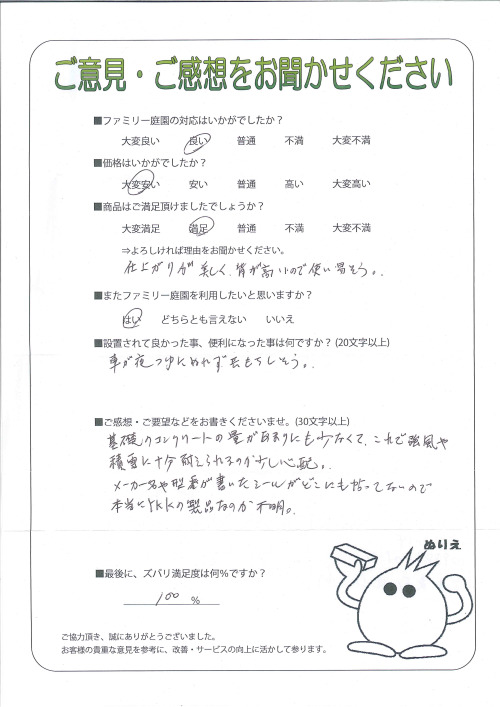 ご意見・ご感想をお聞かせください
■ファミリー庭園の対応はいかがでしたか？
大変良い 良い 普通 不満 大変不満
■価格はいかがでしたか？
大変安い 安い 普通 高い 大変高い
■商品はご満足頂けましたでしょうか？
大変満足 満足 普通 不満 大変不満
⇒よろしければ理由をお聞かせください。
仕上がりが美しく、背が高いので使い易そう。
■またファミリー庭園を利用したいと思いますか？
はい どちらとも言えない いいえ
■設置されて良かった事、便利になった事は何ですか？(20文字以上)
車が夜つゆにぬれず長もちしそう。
■ご感想・ご要望などをお書きくださいませ。(30文字以上)
基礎のコンクリートの量があまりにも少なくて、これで強風や
積雪に十分耐えられるのか少し心配。
メーカー名や型番が書いたシールがどこにも貼ってないので
本当にYKKの製品なのか不明。
ぬりえ
■最後に、ズバリ満足度は何％ですか？
100 %
ご協力頂き、誠にありがとうございました。
お客様の貴重な意見を参考に、改善・サービスの向上に活かして参ります。